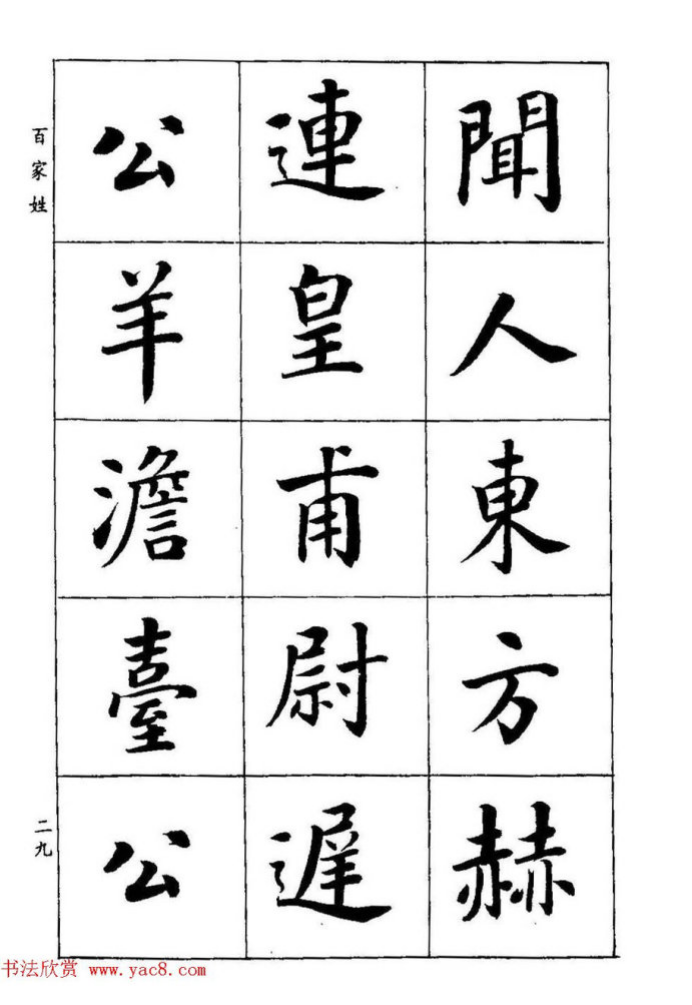 聞人東方赫
連皇甫尉遲
公羊澹臺公
百家姓
二九
书法欣赏 www.yac8.com